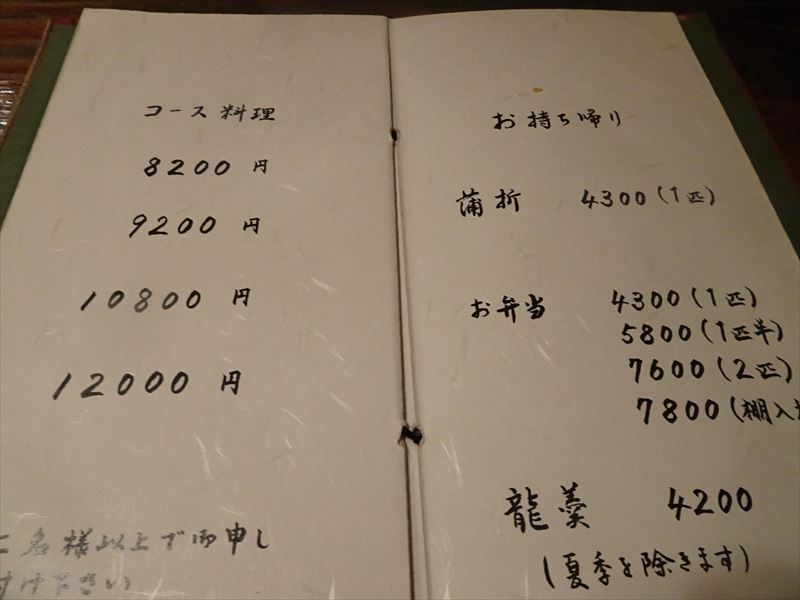 コース料理
8200 円
9200 円
10800 円
12000 円
二名様以上で御申し
付け下さい
お持ち帰り
蒲折 4300(1匹)
お弁当 4300(1匹)
5800(1匹半)
7600(2匹)
7800(棚入
龍羹 4200
(夏季を除きます)